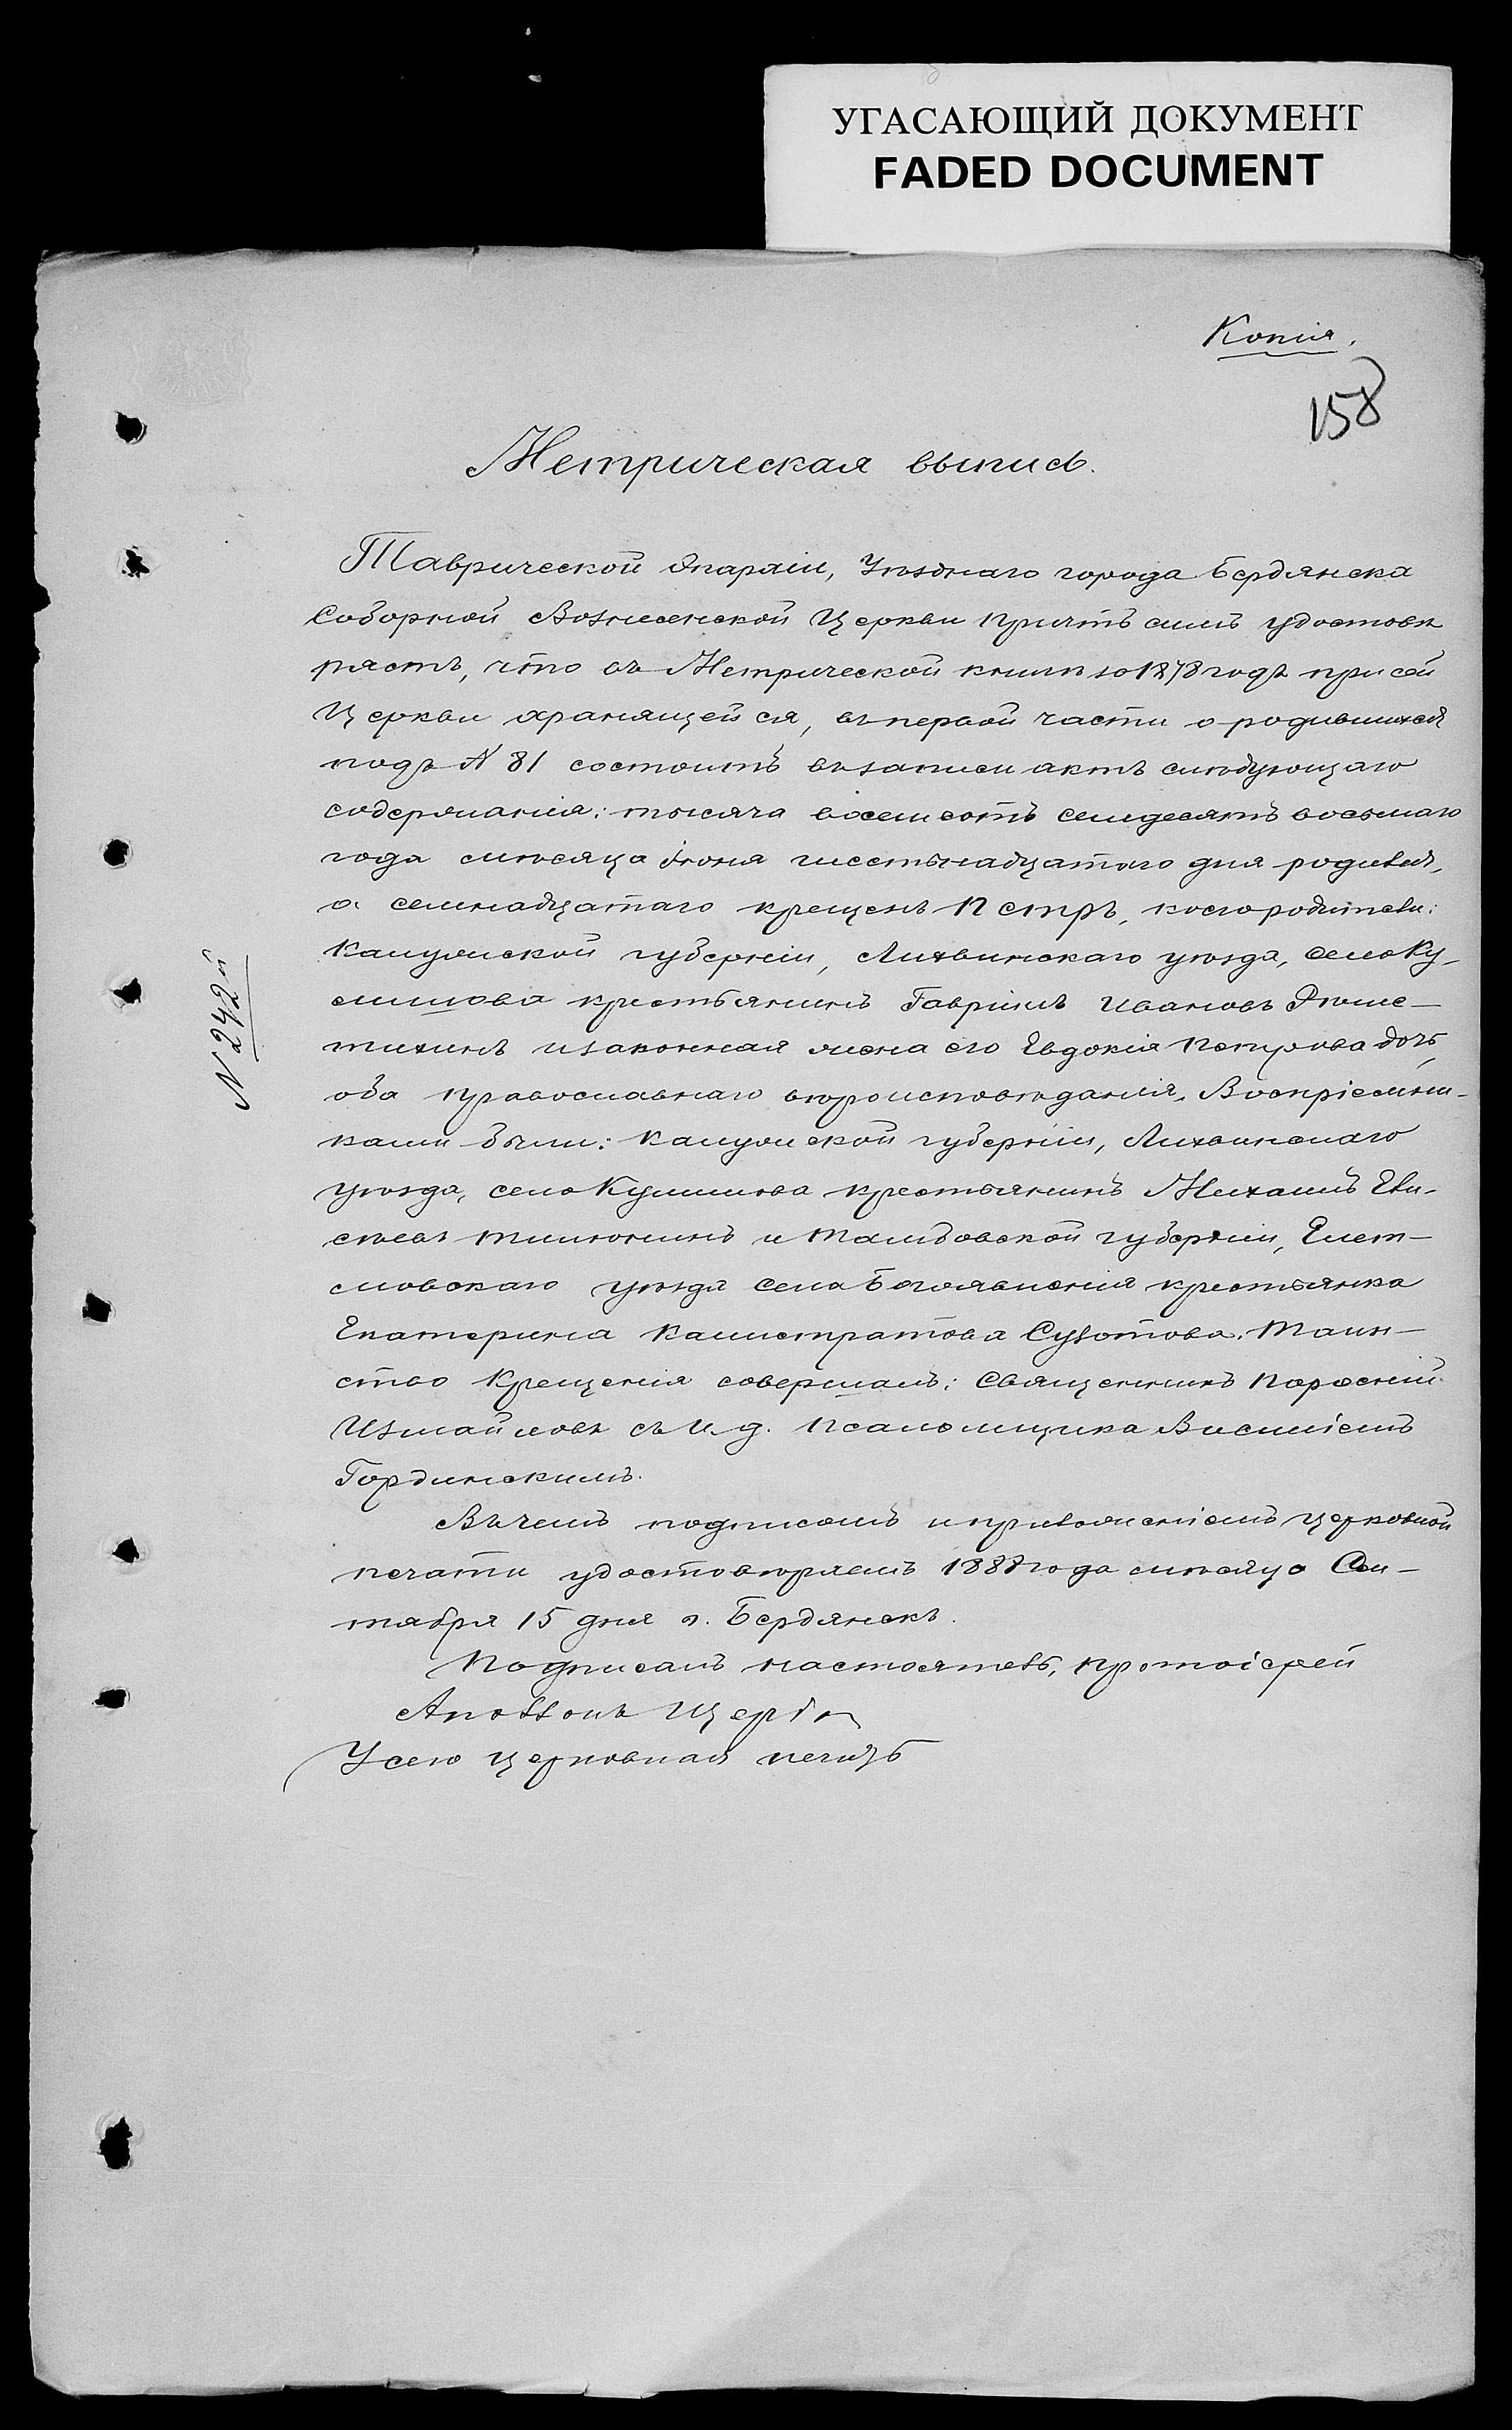 УГАСАЮЩИЙ ДОКУМЕНТ
FADED DOCUMENT
Копія.
158
Метрическая выпись.
Таврической Епархіи, Уѣзднаго города Бердянска
Соборной Вознесенской Церкви Причтъ симъ удостовѣ
ряетъ, что въ Метрической книгѣ за 1878 годъ при сей
Церкви хранящейся, въ первой части о родившихся
подъ № 81 состоитъ въ записи актъ слѣдующаго
содержанія: тысяча восемсотъ семидесятъ восьмаго
года мѣсяца Іюня шестьнадцатаго дня родился,
а семнадцатаго крещенъ Петръ, коего родители:
Калужской губерніи, Лихвинскаго уѣзда, села Ку-
крестьянинъ Гавріилъ Ивановъ
и законная жена его Евдокія Петрова дочь,
оба православнаго вѣроисповѣданія. Воспріемни-
ками были: Калужской губерніи, Лихвинскаго
уѣзда, села крестьянинъ Михаилъ
и Тамбовской губерніи, Елат-
мовскаго уѣзда села Богоявленія крестьянка
Екатерина Калистратова Таин-
ство Крещенія совершалъ: Священникъ
Измайловъ съ И. д. Псаломщика Василіемъ
Гординскимъ.
Въ чемъ подписомъ и приложеніемъ церковной
печати удостовѣряемъ 1888 года мѣсяца Сен-
тября 15 дня г. Бердянскъ.
Подписалъ настоятель, протоіерей
Аполлонъ
У сего церковная печать
N 242й